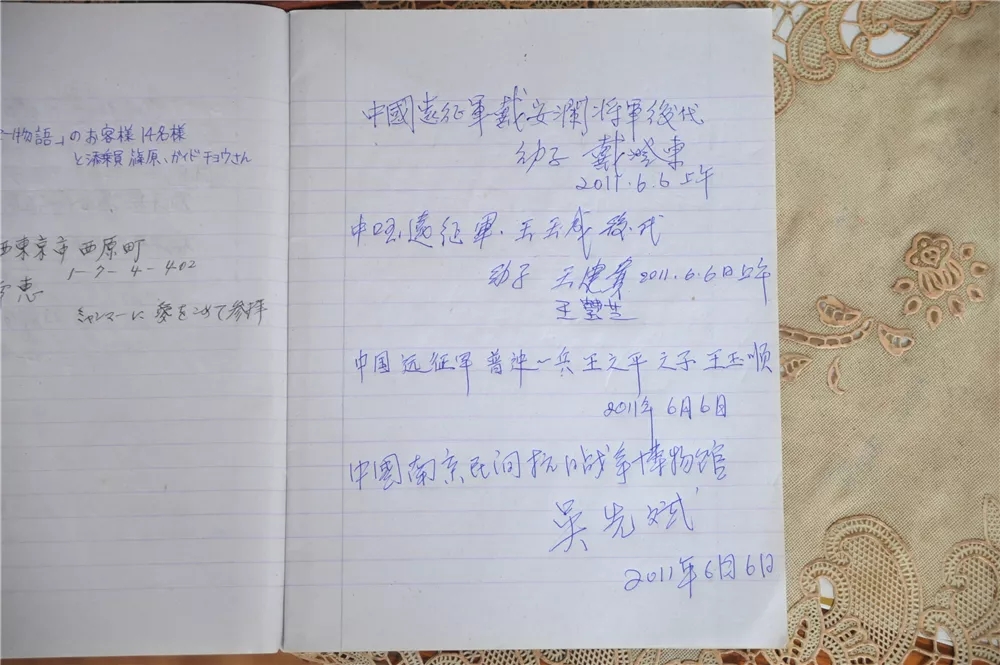 物語」のお客様14名様
と添乗員 篠原、ガイド チョウさん
西東京市 西原町
1-7-4-402
恵
ミャンマーに 愛をこめて参拝
中國遠征軍戴安瀾将軍後代
幼子 戴澄東
2011.6.6上午
中国遠征軍.王玉成後代
幼子 王建 2011.6.6日上午
王瑩芝
中国远征军普通一兵王之平之子王玉顺
2011年6月6日
中国南京民间抗日战争博物馆
吴先斌
2011年6月6日